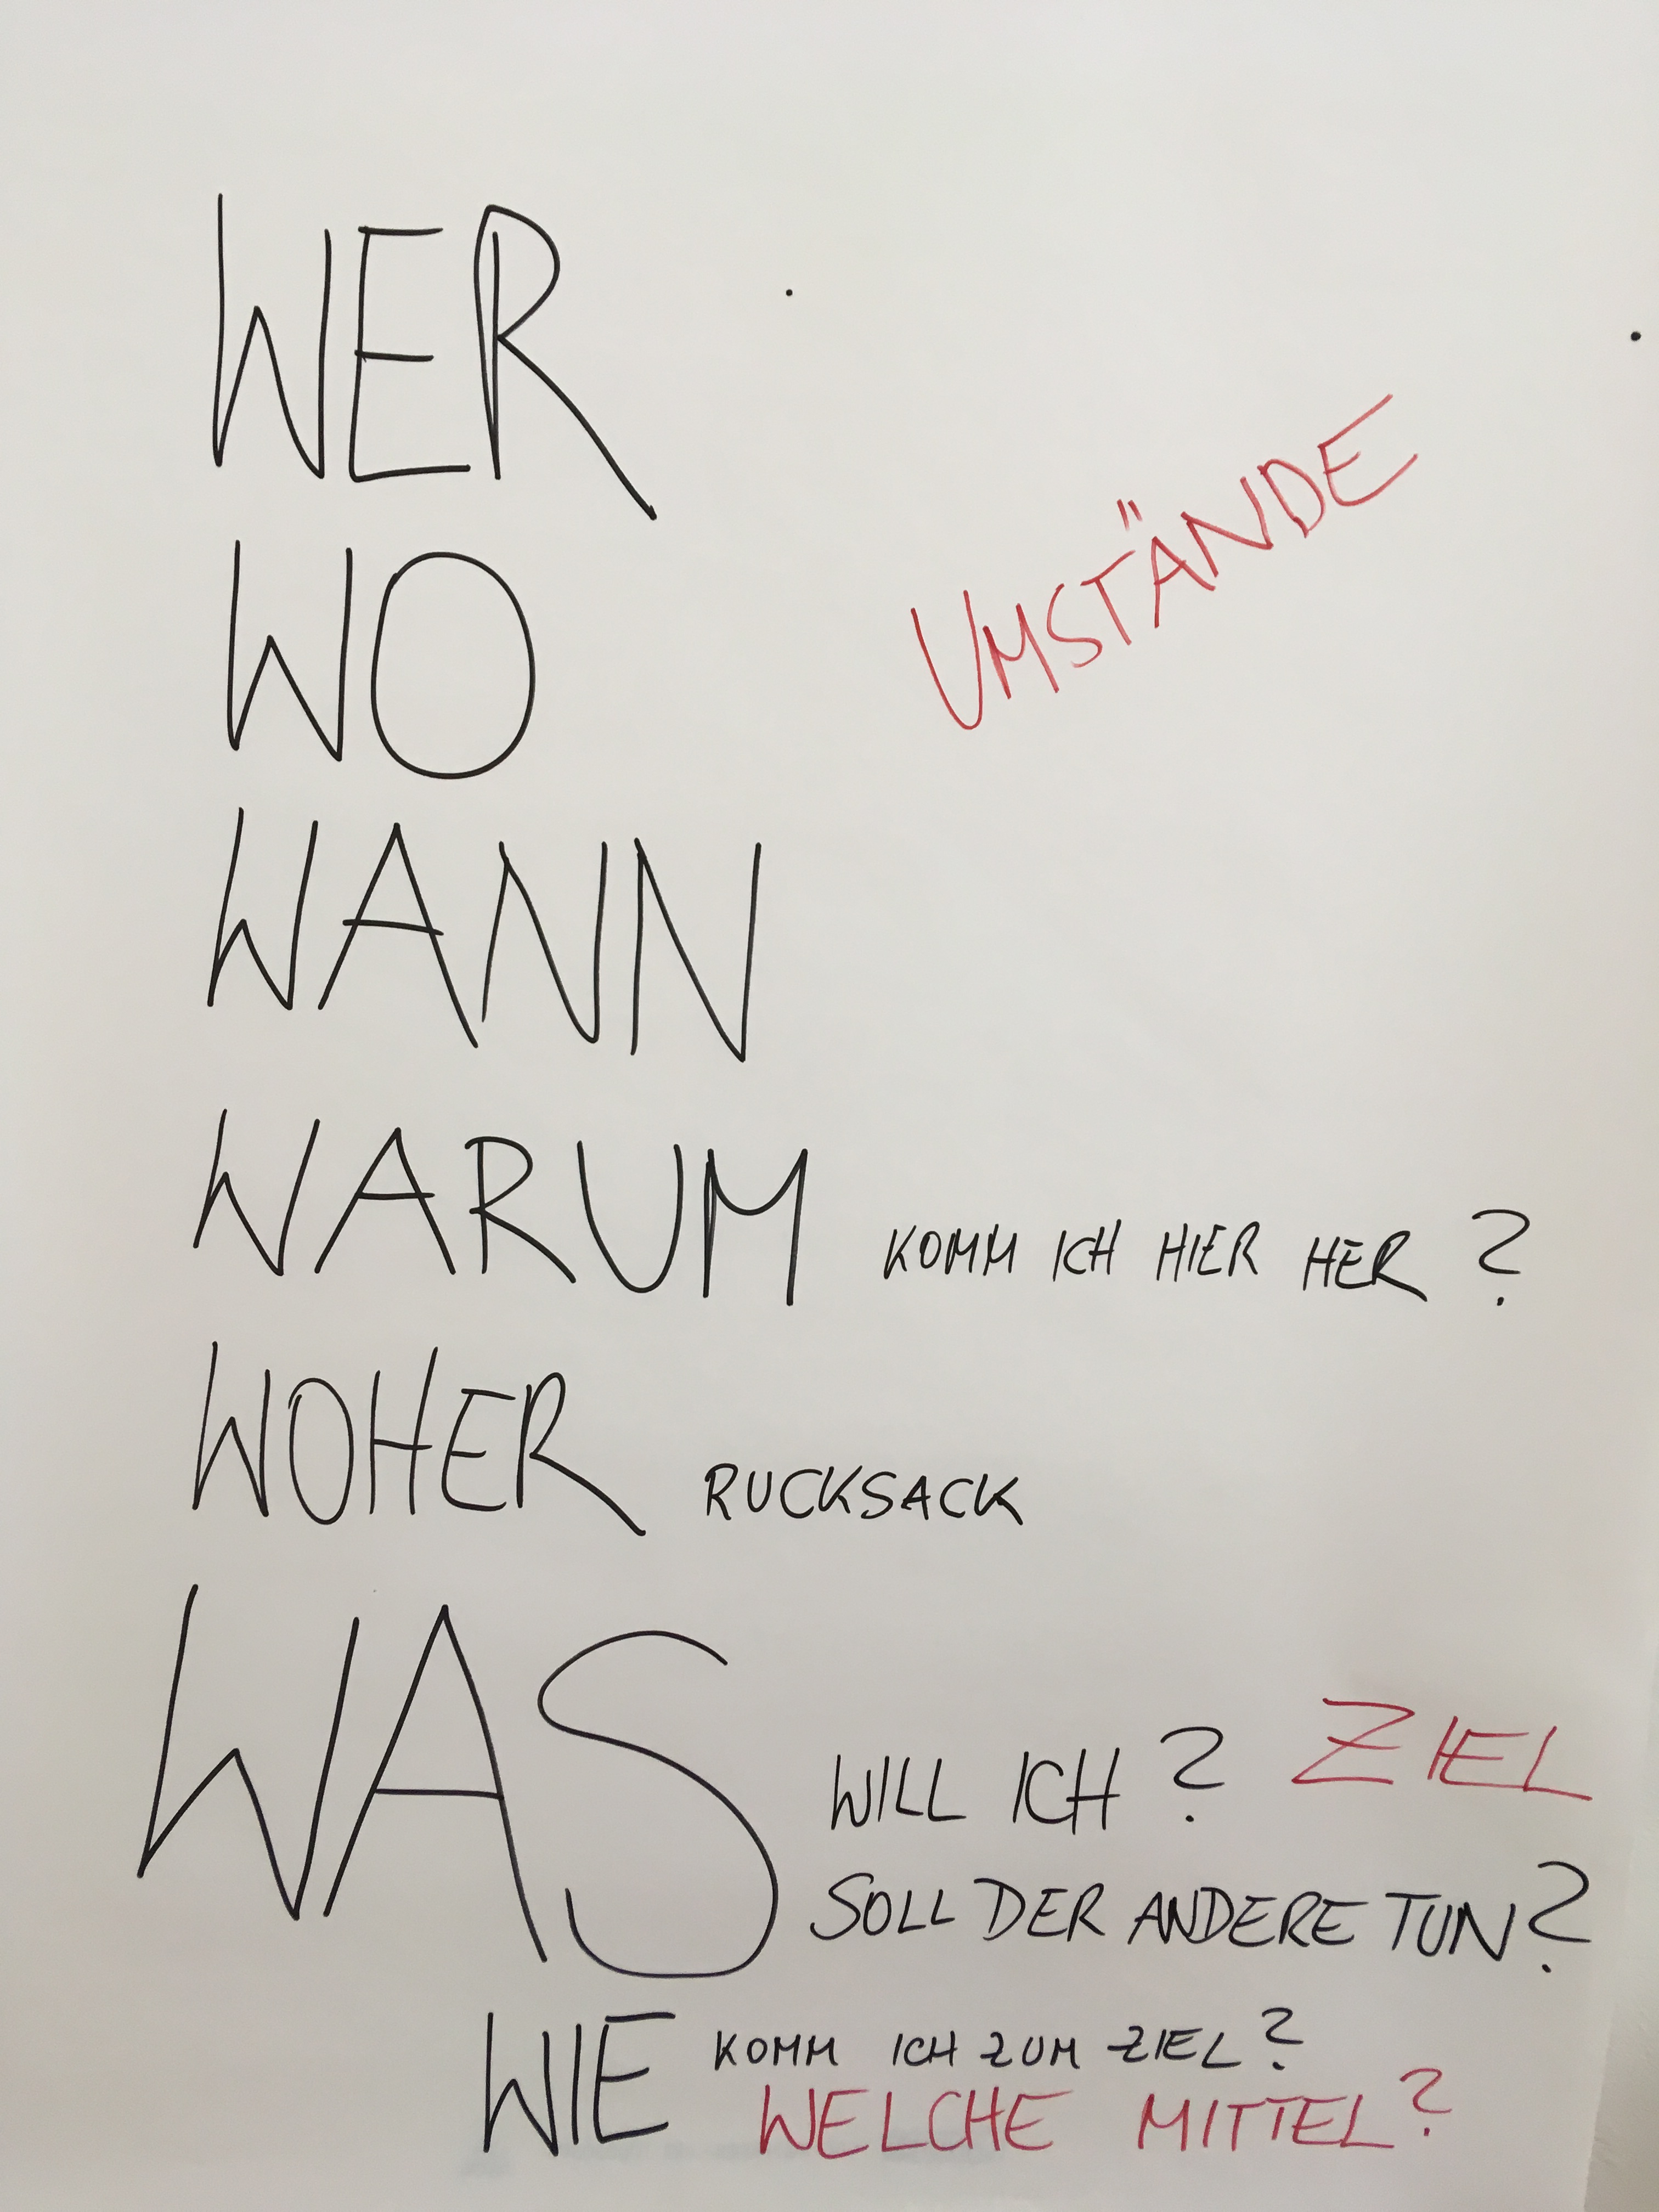 WER
UMSTÄNDE
WO
WANN
WARUM KOMM ICH HIER HER ?
WOHER RUCKSACK
WAS WILL ICH ? ZIEL
SOLL DER ANDERE TUN ?
WIE KOMM ICH ZUM ZIEL ?
WELCHE MITTEL ?